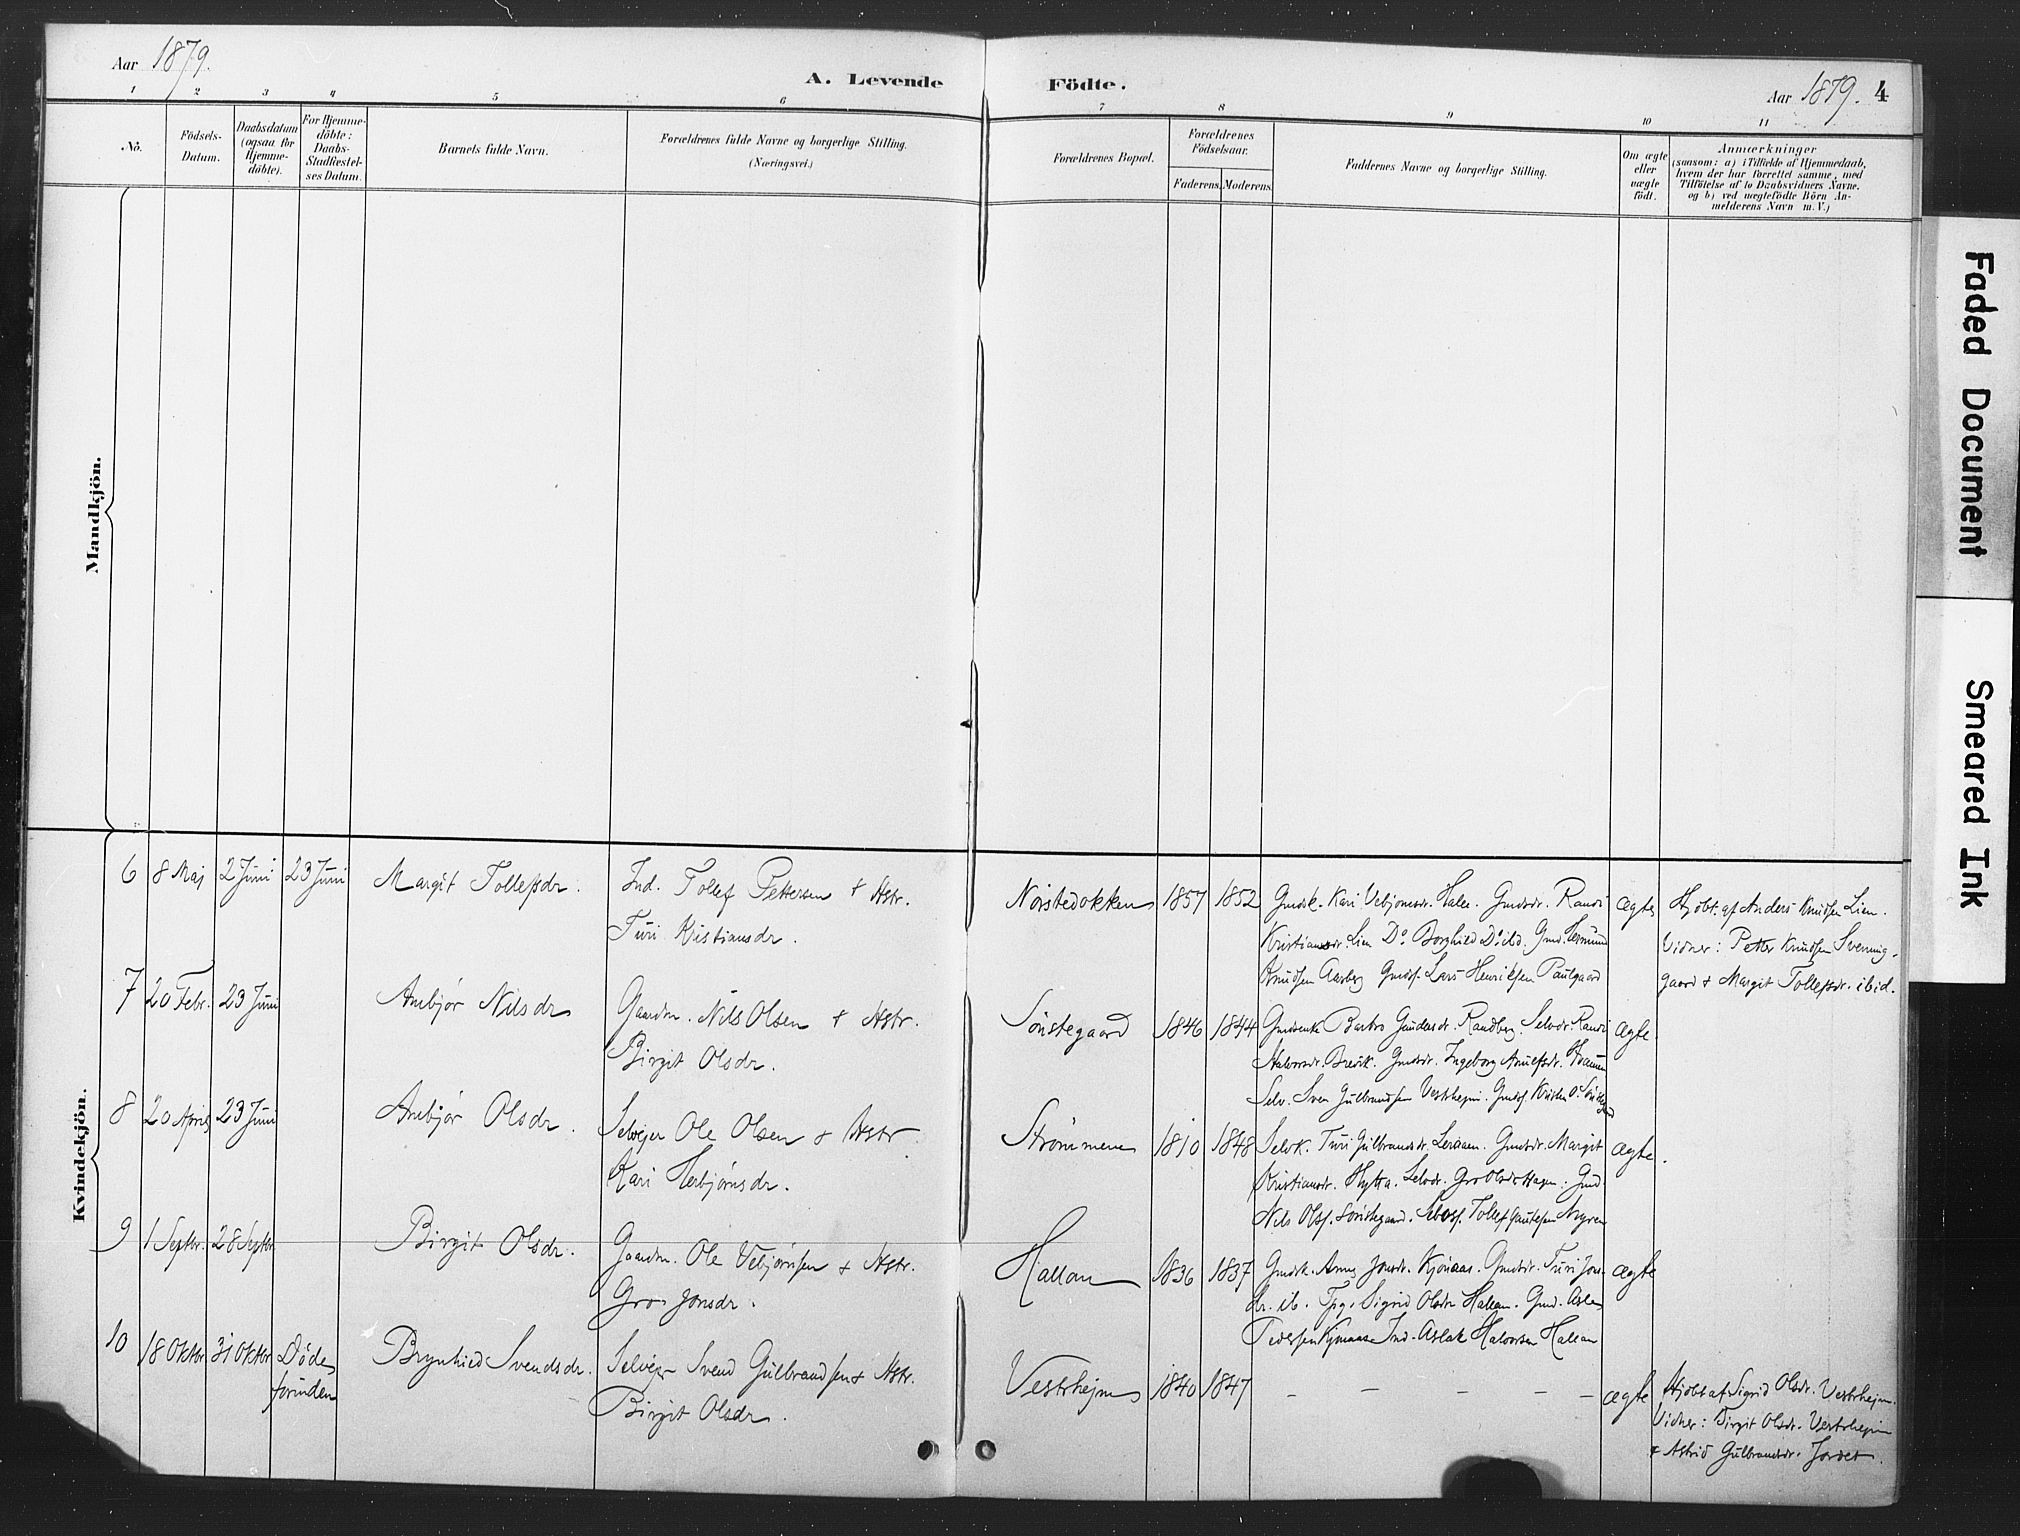 Aar 1879.
A. Levende Födte.
Aar 1879. 4
1 2 3 4 5 6 7 8 9 10 11
No.
Födsels-Datum.
Daabsdatum (ogsaa for Hjemme-döbte).
For Hjemme-döbte: Daabs-Stadfæstel-ses Datum.
Barnets fulde Navn.
Forældrenes fulde Navne og borgerlige Stilling. (Næringsvei.)
Forældrenes Bopæl.
Forældrenes Födselsaar.
Faderens. Moderens.
Faddernes Navne og borgerlige Stilling.
Om ægte eller uægte födt.
Anmærkninger
(saasom: a) i Tilfælde af Hjemmedaab,
hvem der har forrettet samme, med
Tilföielse af to Daabsvidners Navne.
og b) ved uægtefödte Börn An-
melderens Navn m. V.)
Mandkjön.
Kvindekjön.
6 8 Maj 2 Juni 23 Juni Margit Tollefsdr. Ind. Tollef Pettersen + Hstr.
Turi Kristiansdr.
Norstedokken 1857 1852 Gmdsk. Kari Vebjornsdr. Halle. Gmdsdr. Randi
Kristiansdr. Lien Do Borghild Do ibd. Gmd.
Knudsen Aasberg Gmdsf. Lars Henriksen Paulgaard
ægte Hjdbt. af Anders Knudsen Lien.
Vidner: Petter Knudsen Svennig-
gaard + Margit Tollefsdr. ibid.
7 20 Febr. 23 Juni Anbjør Nilsdr Gaardm. Nils Olsen + Hstr.
Birgit Olsdr.
Sönstegaard 1846 1844 Gmdenke Barbro Gundersdr. Randberg. Selvdr. Randi
Halvorsdr. Brevik. Gmdsdr. Ingeborg
Selv. Sven Gulbrandsen Vestrhejm. Gmdsf. Kristen
ægte.
8 20 April 23 Juni Anbjør Olsdr. Selvejer Ole Olsen + Hstr
Kari Herbjørnsdr.
Strömmen 1810 1848 Selvk. Turi Gulbrandsdr. Gmdsdr. Margit
Kristiansdr. Hytta. Selvdr. Gro Olsdr Hagen. Gmd.
Nils Olsf. Sönstegaard. Selvsf. Tollef
ægte.
9 1 Septbr. 28 Septbr Birgit Olsdr. Gaardm. Ole Vebjørnsen + Hstr.
Gro Jonsdr.
Hallan 1836 1837 Gmdsk. Anne Jonsdr. Kjönaas. Gmdsdr. Turi Jons-
dr. ib. Tjg. Sigrid Olsdr Hallan. Gmd. Asle
Pedersen Kjönaas Ind. Aslak Halvorsen Hallan
ægte
10 18 Oktbr. 31 Oktbr. Döde forinden Brynhild Svendsdr. Selvejer Svend Gulbrandsen + Hstr.
Birgit Olsdr.
Vestrhejm 1840 1847 – – – – – ægte Hjdbt af Sigrid Olsdr. Vestrhejm.
Vidner: Birgit Olsdr. Vestrhejm
+ Astrid Gulbrandsdr. Jordet.
Faded Document
Smeared Ink